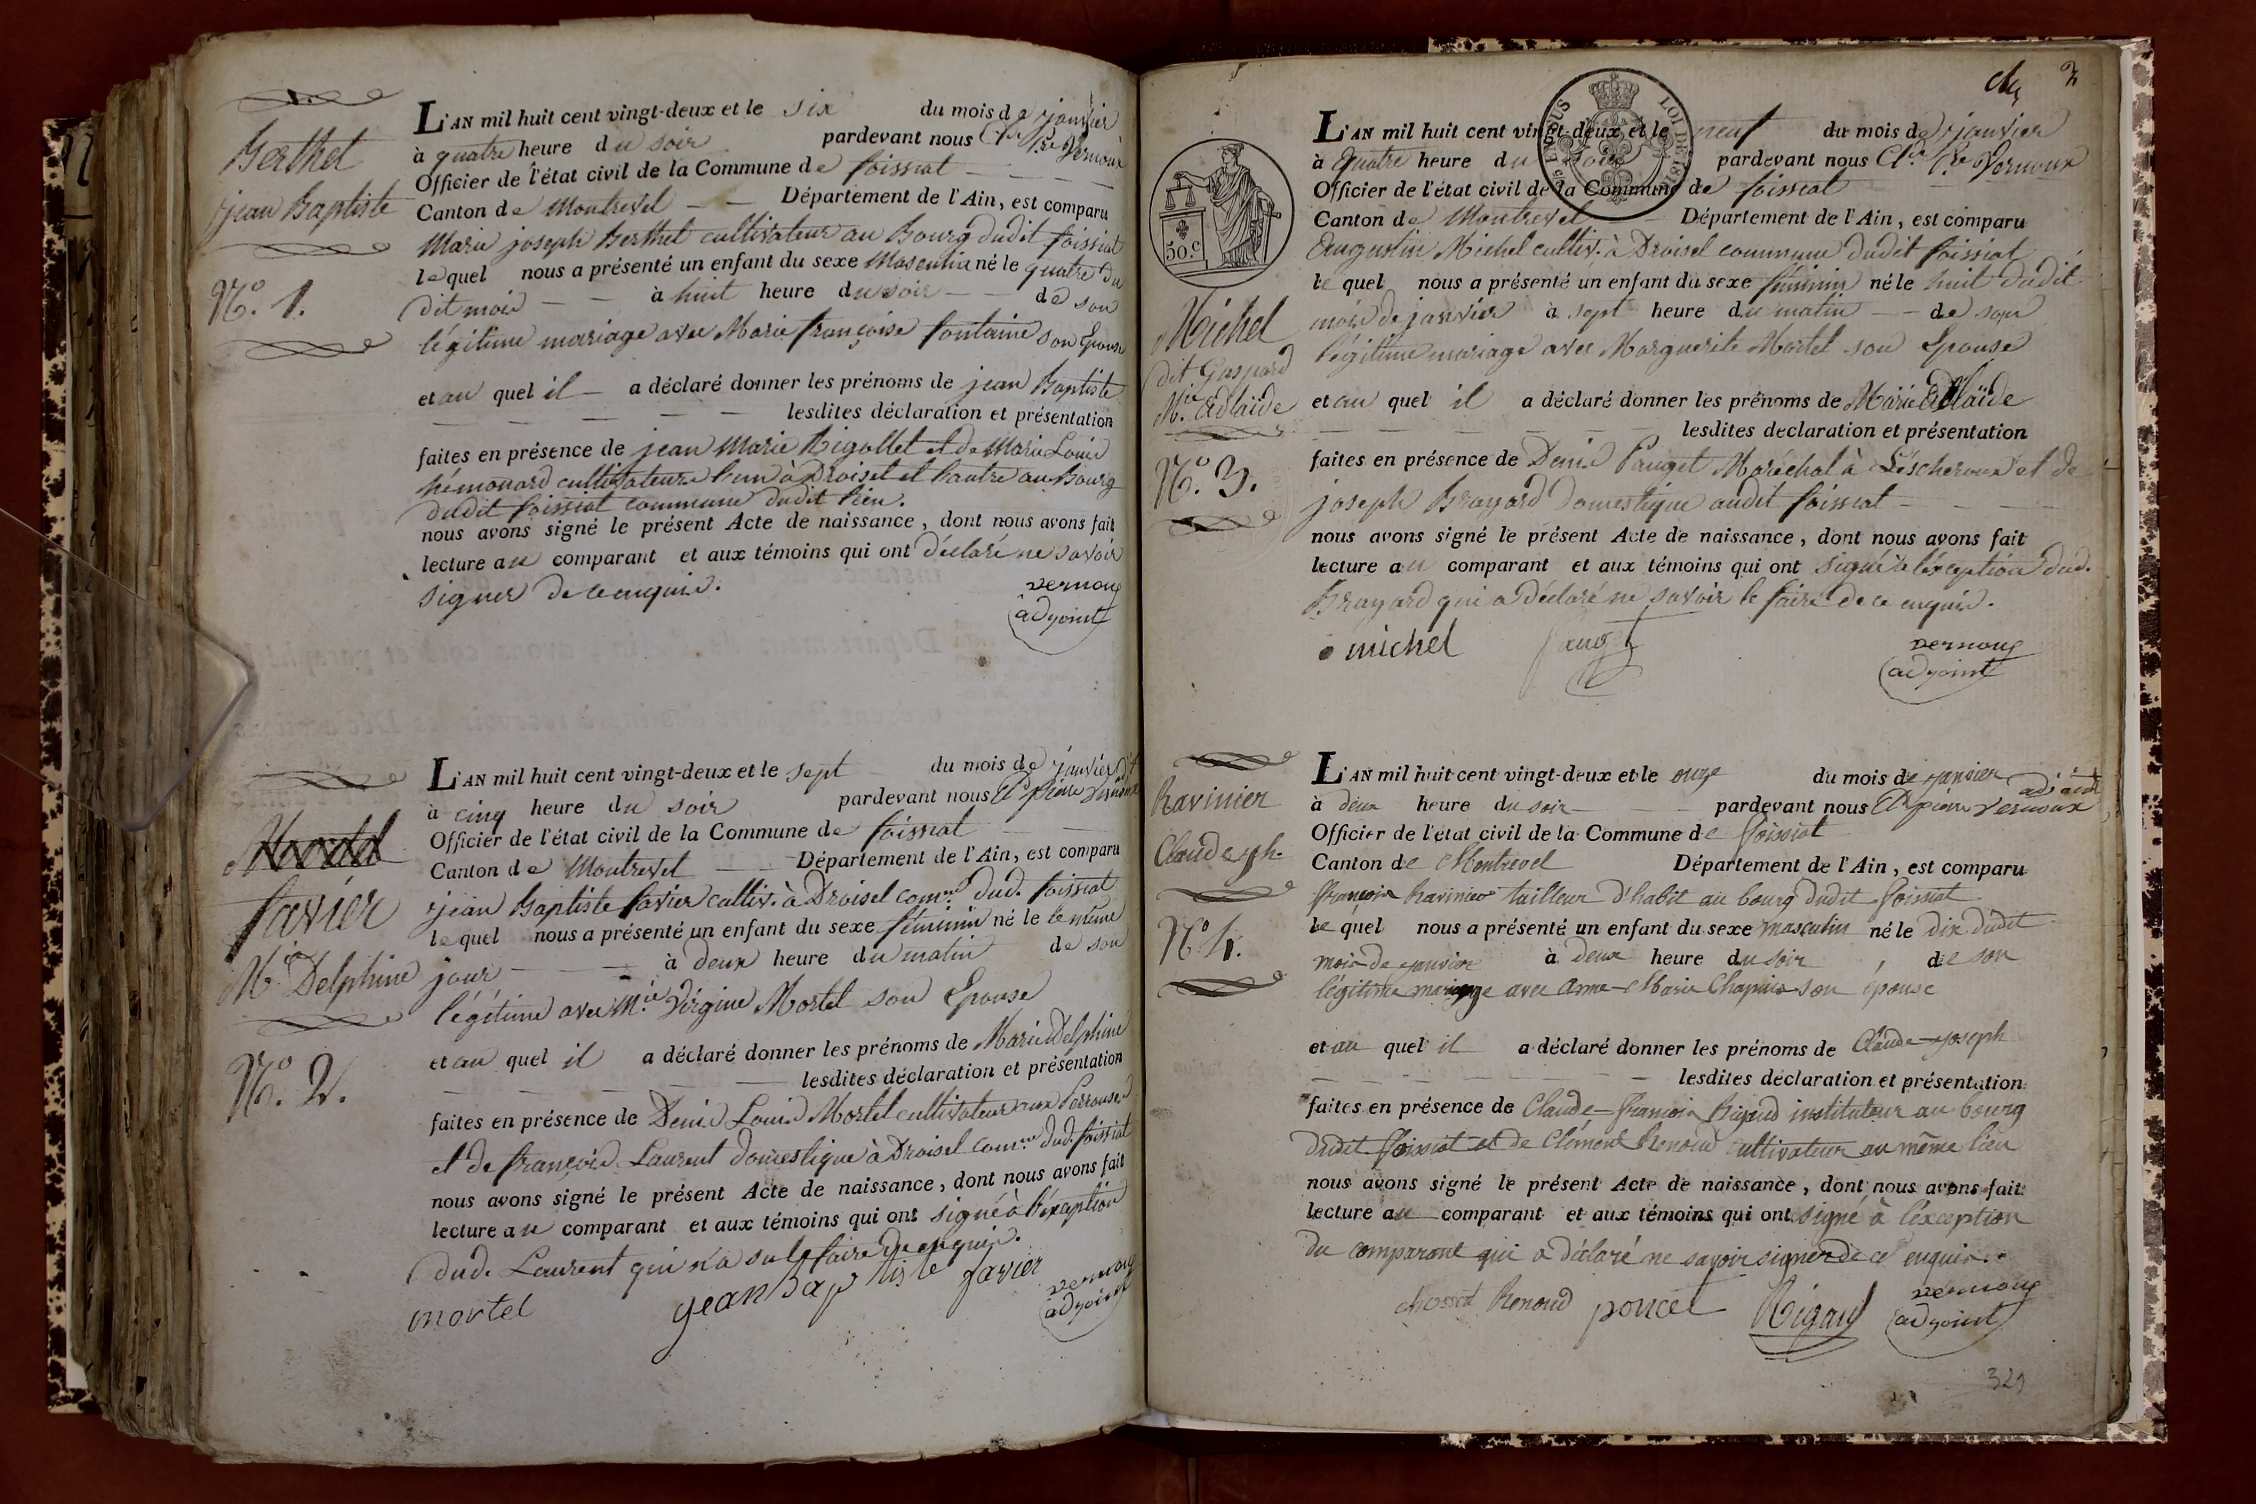 1.
Berthet
jean Baptiste
N.o 1.
L'AN mil huit cent vingt-deux et le six du mois de janvier
à quatre heure du soir pardevant nous Cl.de P.re Vernoux
Officier de l'état civil de la Commune de foissiat
Canton de Montrevel Département de l'Ain, est comparu
Marie joseph Berthet cultivateur au Bourg dudit foissiat
lequel nous a présenté un enfant du sexe Masculin né le quatre du
dit mois à huit heure du soir de son
légitime mariage avec Marie françoise fontaine son Epouse
et au quel il a déclaré donner les prénoms de jean Baptiste
lesdites déclaration et présentation
faites en présence de jean Marie Rigollet et de Marie Louis
hémonard cultivateurs l'un à Droisel et l'autre au Bourg
dudit foissiat commune dudit lieu.
nous avons signé le présent Acte de naissance, dont nous avons fait
lecture au comparant et aux témoins qui ont déclaré ne savoir
signer de ce enquis.
vernoux
adjoint
Favier
M.ie Delphine
N.o 2.
L'AN mil huit cent vingt-deux et le sept du mois de janvier
à cinq heure du soir pardevant nous Cl.de pierre Vernoux
Officier de l'état civil de la Commune de foissiat
Canton de Montrevel Département de l'Ain, est comparu
jean Baptiste favier cultiv. à Droisel com.ne dud. foissiat
lequel nous a présenté un enfant du sexe féminin né le le même
jour à deux heure du matin de son
légitime avec M.ie Virginie Mortel son Epouse
et au quel il a déclaré donner les prénoms de Marie Delphine
lesdites déclaration et présentation
faites en présence de Denis Louis Mortel cultivateur aux
et de françois Laurent domestique à Droisel com.ne dud. foissiat
nous avons signé le présent Acte de naissance, dont nous avons fait
lecture au comparant et aux témoins qui ont signé à l'exception
dud. Laurent qui n'a su le faire de ce enquis.
mortel jean baptiste favier vernoux
adjoint
2
TIMBRE
LOI DE 1816
50.c
Michel
dit Gaspard
M.ie Adlaïde
N.o 3.
L'AN mil huit cent vingt-deux et le neuf du mois de janvier
à quatre heure du soir pardevant nous Cl.de P.re Vernoux
Officier de l'état civil de la Commune de foissiat
Canton de Montrevel Département de l'Ain, est comparu
Augustin Michel cultiv. à Droisel commune dudit foissiat
le quel nous a présenté un enfant du sexe féminin né le huit dudit
mois de janvier à sept heure du matin de son
légitime mariage avec Marguerite Mortel son Epouse
et au quel il a déclaré donner les prénoms de Marie Adlaïde
lesdites declaration et présentation
faites en présence de Denis Pauget Maréchal à Lescheroux et de
joseph Brayard Domestique audit foissiat
nous avons signé le présent Acte de naissance, dont nous avons fait
lecture au comparant et aux témoins qui ont signé à l'exception dud.
Brayard qui a déclaré ne savoir le faire de ce enquis.
michel pauget vernoux
adjoint
Ravinier
Claude jph.
N.o 4.
L'AN mil huit cent vingt-deux et le onze du mois de janvier
à deux heure du soir pardevant nous Cl.de pierre Vernoux adjoint
Officier de l'état civil de la Commune de foissiat
Canton de Montrevel Département de l'Ain, est comparu
françois Ravinier tailleur d'habit au bourg dudit foissiat
le quel nous a présenté un enfant du sexe masculin né le dix dudit
mois de janvier à deux heure du soir de son
légitime mariage avec anne Marie Chapuis son épouse
et au quel il a déclaré donner les prénoms de Claude joseph
lesdites déclaration et présentation
faites en présence de Claude françois Rigaud instituteur au bourg
dudit foissiat et de Clément Renoud cultivateur au même lieu
nous avons signé le présent Acte de naissance, dont nous avons fait
lecture au comparant et aux témoins qui ont signé à l'exception
du comparant qui a déclaré ne savoir signer de ce enquis.
Renoud poncet Rigaud vernoux
adjoint
329